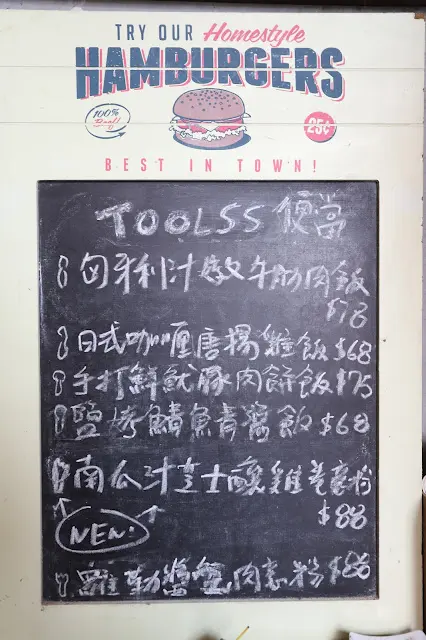 TRY OUR Homestyle
HAMBURGERS
100%
25¢
BEST IN TOWN!
TOOLSS 便當
匈牙利汁燉牛肋肉飯
$78
日式咖喱唐揚雞飯 $68
手打鮮魷豚肉餅飯 $75
鹽烤鯖魚青醬飯 $68
南瓜汁芝士釀雞卷意粉
$88
NEW!
羅勒醬蟹肉意粉